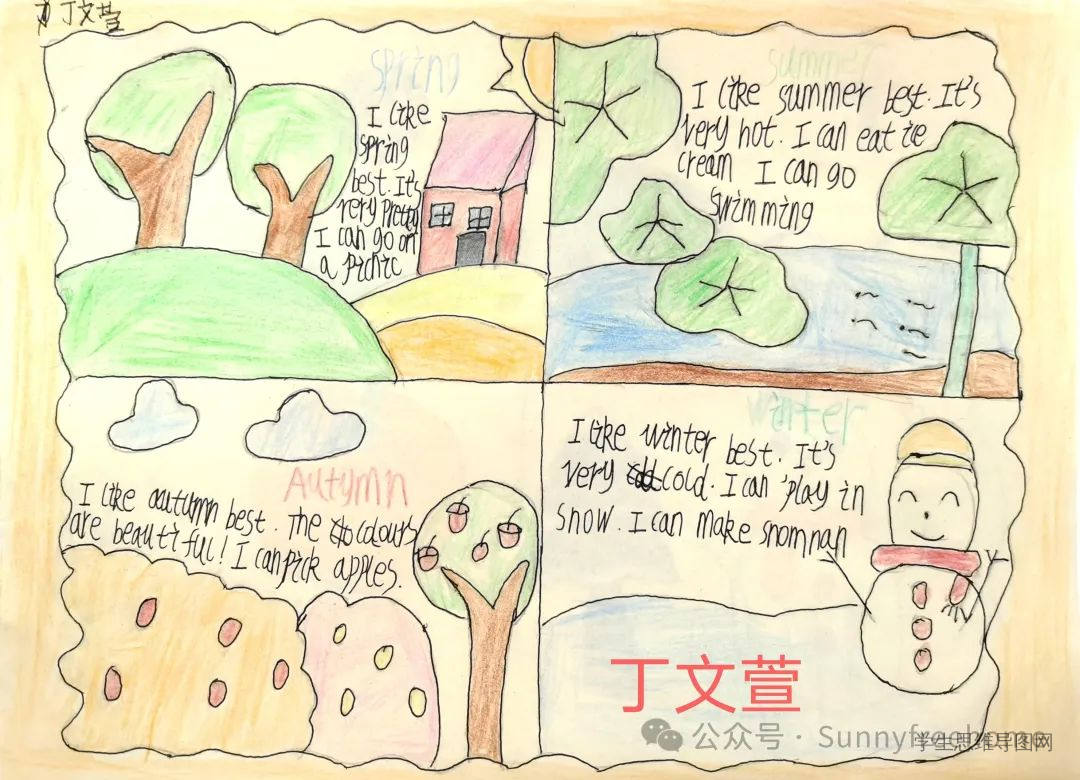 丁文萱
spring
I like
spring
best. It's
very pretty
I can go on
a picnic
summer
I like summer best. It's
very hot. I can eat ice
cream I can go
swimming
Autumn
I like autumn best. The colours
are beautiful! I can pick apples.
winter
I like winter best. It's
very cold. I can play in
snow. I can make snomnan
丁文萱
公众号 · Sunnyfree
学生思维导图网